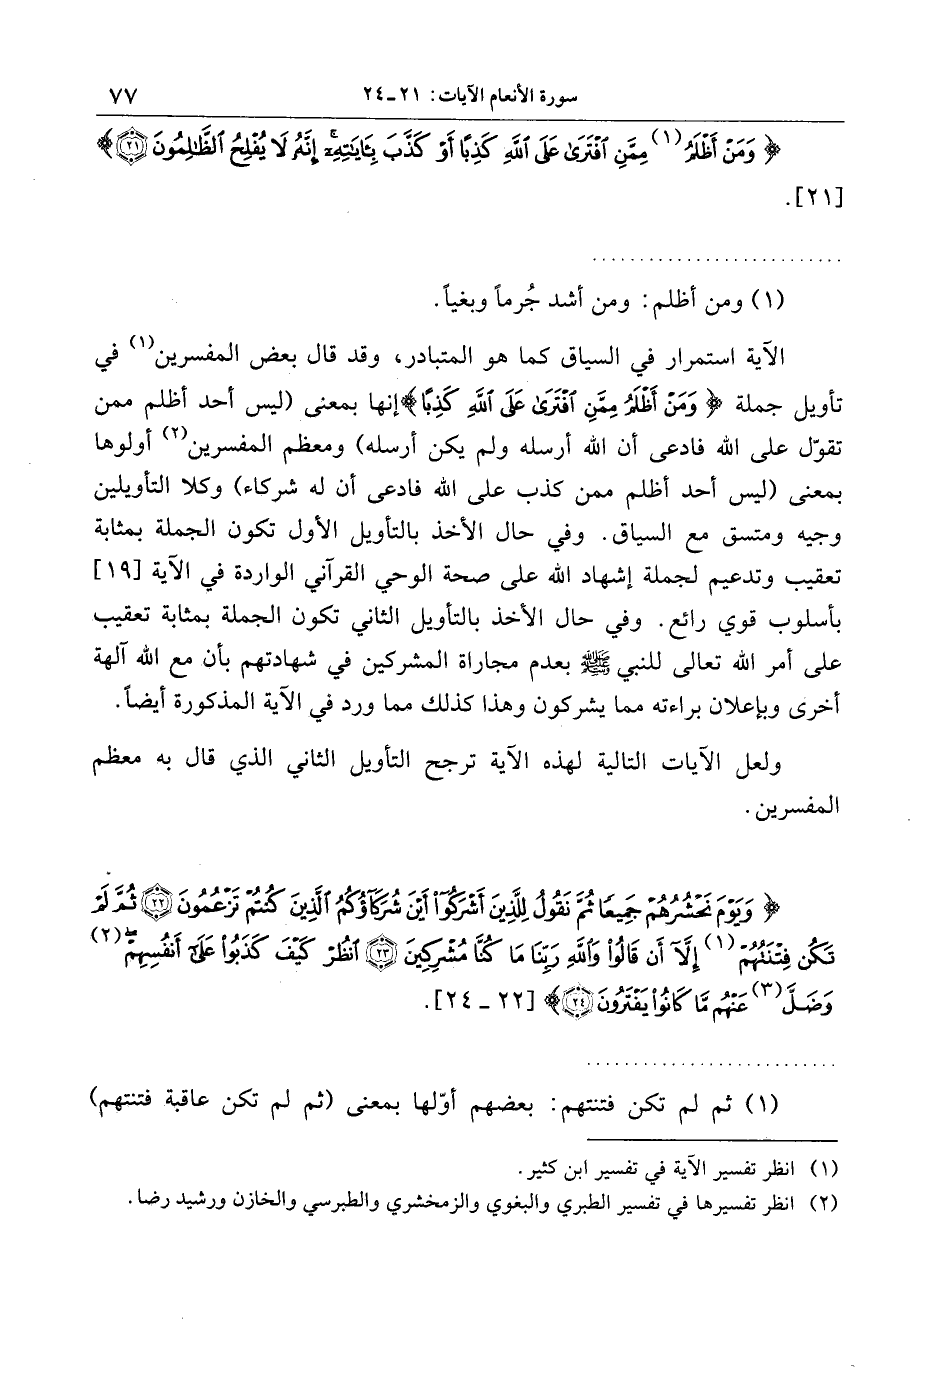 سورة الأنعام الآيات: ٢١ـ٢٤ ٧٧
﴿ وَمَنْ أَظْلَمُ(١) مِمَّنِ ٱفْتَرَىٰ عَلَى ٱللَّهِ كَذِبًا أَوْ كَذَّبَ بِـَٔايَـٰتِهِۦٓ إِنَّهُۥ لَا يُفْلِحُ ٱلظَّـٰلِمُونَ ۝٢١ ﴾
[٢١].
..........................
(١) ومن أظلم: ومن أشد جُرماً وبغياً.
الآية استمرار في السياق كما هو المتبادر، وقد قال بعض المفسرين(١) في
تأويل جملة ﴿ وَمَنْ أَظْلَمُ مِمَّنِ ٱفْتَرَىٰ عَلَى ٱللَّهِ كَذِبًا﴾إنها بمعنى (ليس أحد أظلم ممن
تقوّل على الله فادعى أن الله أرسله ولم يكن أرسله) ومعظم المفسرين(٢) أولوها
بمعنى (ليس أحد أظلم ممن كذب على الله فادعى أن له شركاء) وكلا التأويلين
وجيه ومتسق مع السياق. وفي حال الأخذ بالتأويل الأول تكون الجملة بمثابة
تعقيب وتدعيم لجملة إشهاد الله على صحة الوحي القرآني الواردة في الآية [١٩]
بأسلوب قوي رائع. وفي حال الأخذ بالتأويل الثاني تكون الجملة بمثابة تعقيب
على أمر الله تعالى للنبي ﷺ بعدم مجاراة المشركين في شهادتهم بأن مع الله آلهة
أخرى وبإعلان براءته مما يشركون وهذا كذلك مما ورد في الآية المذكورة أيضاً.
ولعل الآيات التالية لهذه الآية ترجح التأويل الثاني الذي قال به معظم
المفسرين.
﴿ وَيَوْمَ نَحْشُرُهُمْ جَمِيعًا ثُمَّ نَقُولُ لِلَّذِينَ أَشْرَكُوٓا۟ أَيْنَ شُرَكَآؤُكُمُ ٱلَّذِينَ كُنتُمْ تَزْعُمُونَ ۝٢٢ ثُمَّ لَمْ
تَكُن فِتْنَتُهُمْ(١) إِلَّآ أَن قَالُوا۟ وَٱللَّهِ رَبِّنَا مَا كُنَّا مُشْرِكِينَ ۝٢٣ ٱنظُرْ كَيْفَ كَذَبُوا۟ عَلَىٰٓ أَنفُسِهِمْ ۖ(٢)
وَضَلَّ(٣) عَنْهُم مَّا كَانُوا۟ يَفْتَرُونَ ۝٢٤﴾ [٢٢ ـ ٢٤].
..........................
(١) ثم لم تكن فتنتهم: بعضهم أوّلها بمعنى (ثم لم تكن عاقبة فتنتهم)
(١) انظر تفسير الآية في تفسير ابن كثير.
(٢) انظر تفسيرها في تفسير الطبري والبغوي والزمخشري والطبرسي والخازن ورشيد رضا.